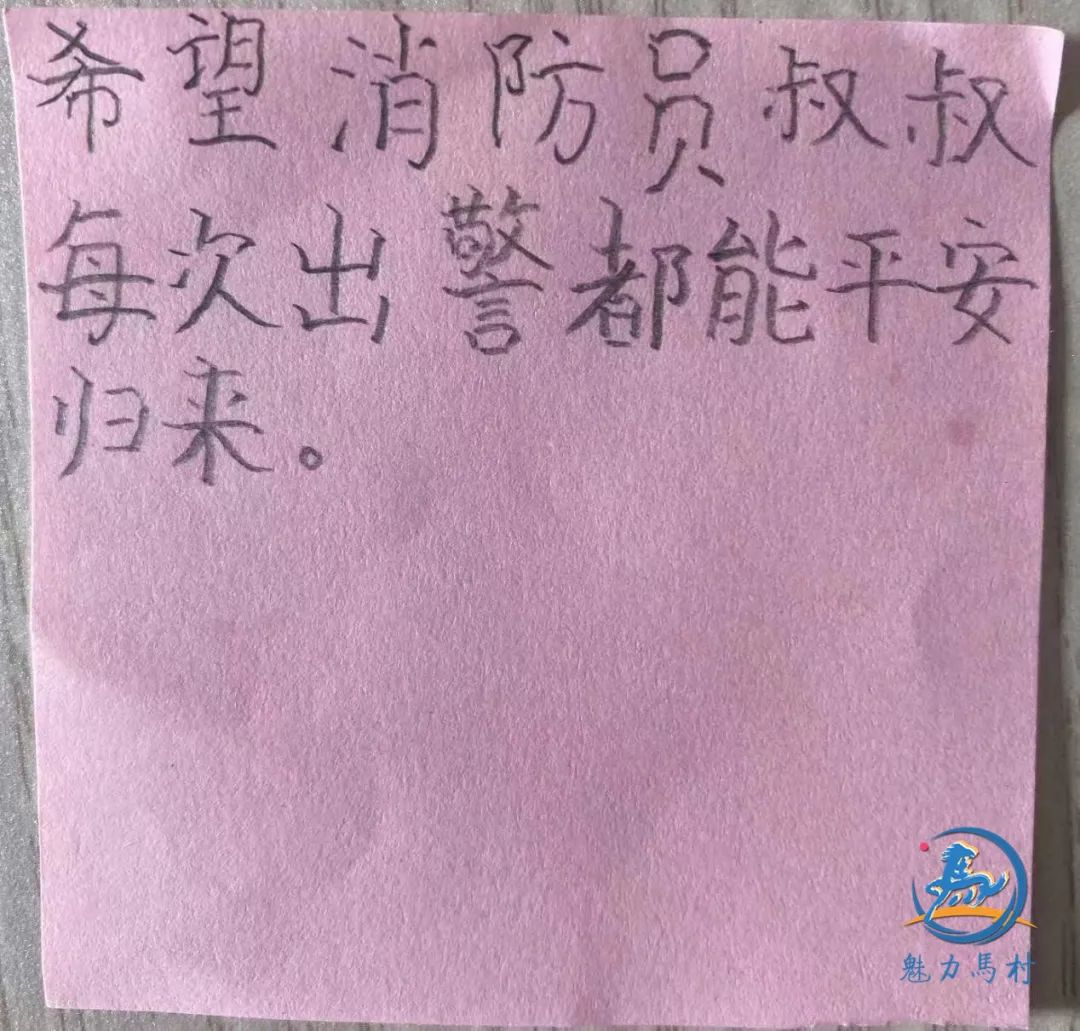 希望消防员叔叔
每次出警都能平安
归来。
魅力馬村